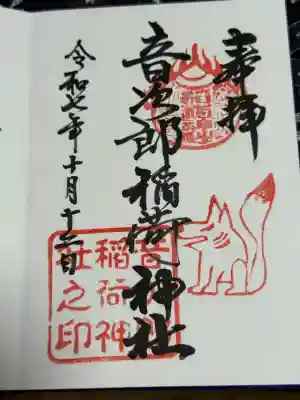 奉拝
音次郎稲荷神社
令和七年十月十六日
音次郎
稲荷神
社之印